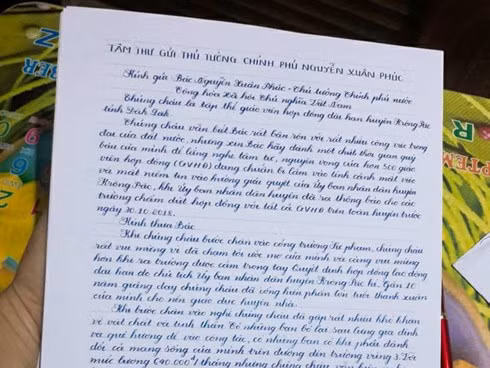 TÂM THƯ GỬI THỦ TƯỚNG CHÍNH PHỦ NGUYỄN XUÂN PHÚC
Kính gửi Bác Nguyễn Xuân Phúc - Thủ tướng Chính phủ nước
Cộng hòa Xã hội Chủ nghĩa Việt Nam
Chúng cháu là tập thể giáo viên hợp đồng dài hạn huyện Krông Pắc
tỉnh Đắk Lắk.
Chúng cháu vẫn biết Bác rất bận rộn với rất nhiều công việc trọng
đại của đất nước, nhưng xin Bác hãy dành một chút thời gian quý
báu của mình để lắng nghe tâm tư, nguyện vọng của hơn 500 giáo
viên hợp đồng (GVHĐ) đang chuẩn bị lâm vào tình cảnh mất việc
và mất niềm tin vào hướng giải quyết của Ủy ban nhân dân huyện
Krông Pắc, khi Ủy ban nhân dân huyện đã ra thông báo cho các
trường chấm dứt hợp đồng với tất cả GVHĐ trên toàn huyện trước
ngày 30.10.2018.
Kính thưa Bác
Khi chúng cháu bước chân vào cổng trường Sư phạm, chúng cháu
rất vui mừng vì đã chạm tới ước mơ của mình và càng vui mừng
hơn khi ra trường được cầm trong tay Quyết định hợp đồng lao động
dài hạn do chủ tịch Ủy ban nhân dân huyện Krông Pắc kí. Gần 10
năm giảng dạy chúng cháu đã cống hiến phần lớn tuổi thanh xuân
của mình cho nền giáo dục huyện nhà.
Khi bước chân vào nghề chúng cháu đã gặp rất nhiều khó khăn
về vật chất và tinh thần. Có những bạn bỏ lại sau lưng gia đình
và quê hương để vào công tác, có những bạn có khi phải đánh
đổi cả mạng sống của mình trên đường đến trường vùng 3. Với
mức lương
tháng nhưng chúng cháu vẫn